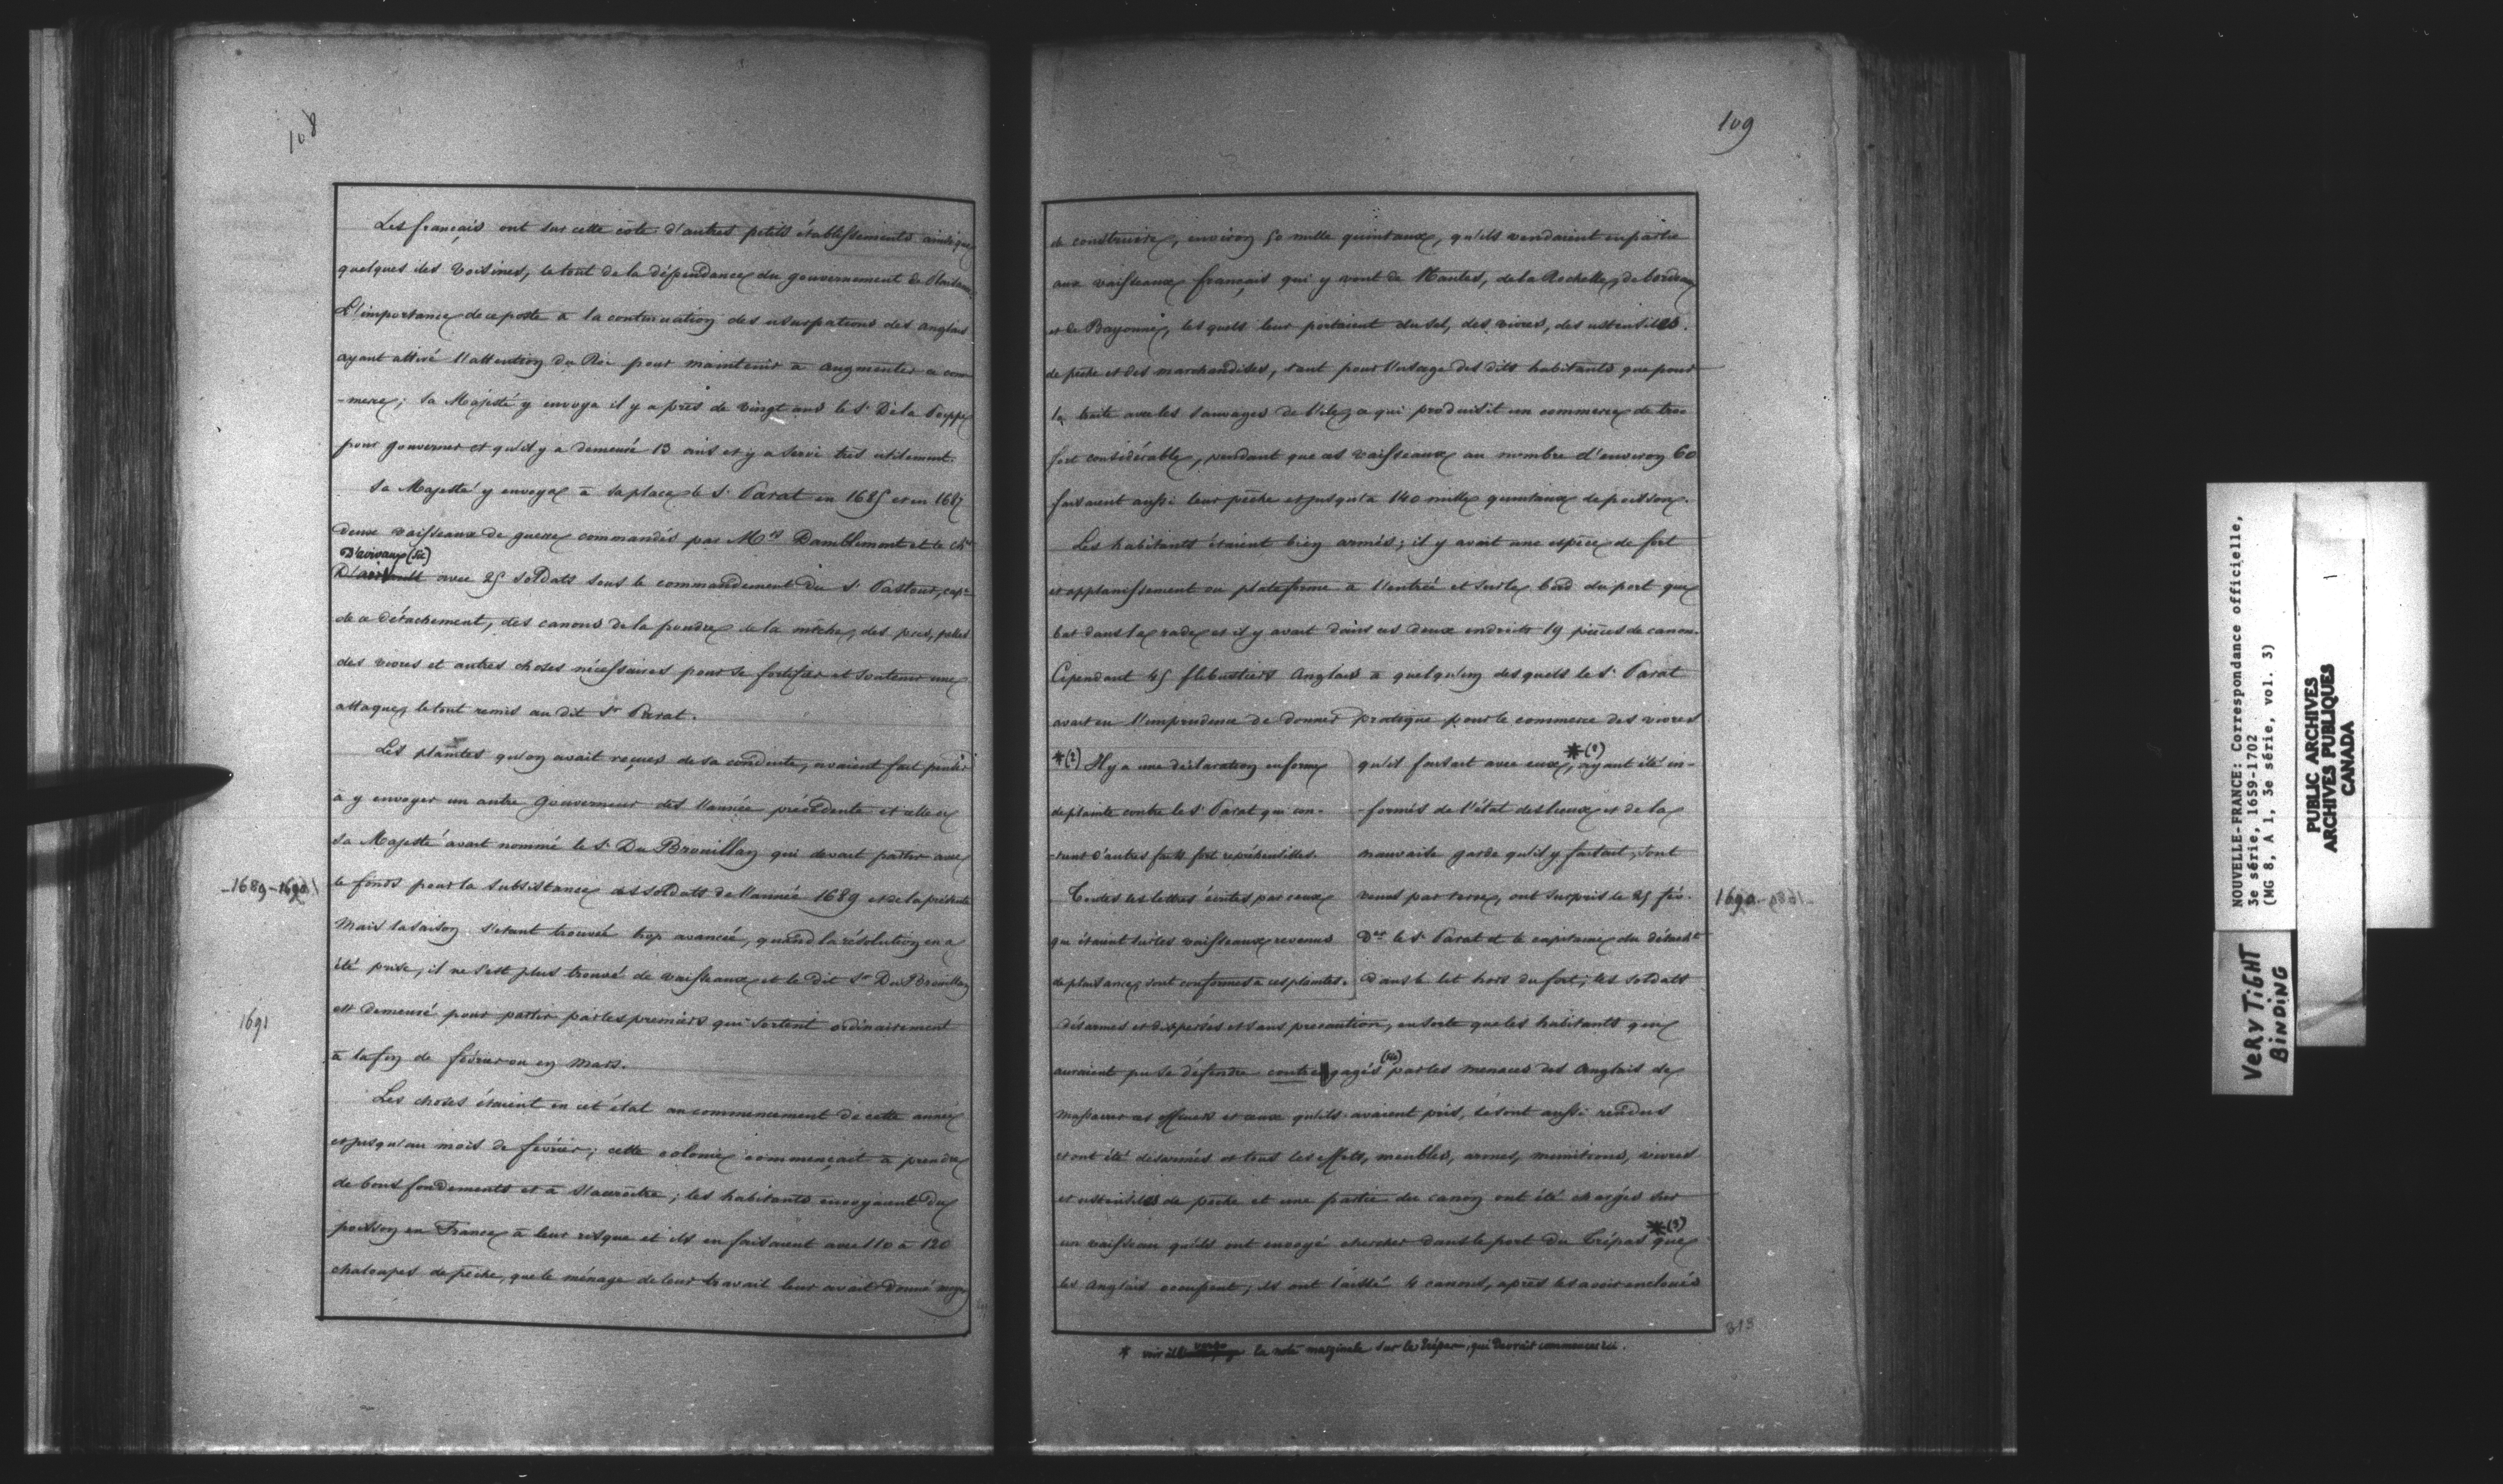 108
Les français ont sur cette côte d'autres petits établissements ainsi que
quelques iles voisines, le tout de la dépendance du gouvernement de Plaisance.
L'importance de ce poste à la continuation des usurpations des anglais
ayant attiré l'attention du Roi pour maintenir à augmenter ce com
-merce; Sa Majesté y envoya il y a près de vingt ans le Sr De la Poippe
pour gouverner et qu'il y a demeuré 13 ans et y a servi très utilement.
Sa Majesté y envoya à sa place le Sr Parat en 1685 et en 1687
deux vaisseaux de guerre commandés par Mrs Damblement et le Chr
D'arvaux (sic)
avec 25 soldats sous le commandement du Sr Pastour, capne
de ce détachement, des canons de la poudre de la mèche, des pics, pelles
des vivres et autres choses nécessaires pour se fortifier et soutenir une
attaque, le tout remis au dit Sr Parat.
Les plaintes qu'on avait reçues de sa conduite, avaient fait penser
à y envoyer un autre Gouverneur dès l'année précédente et
Sa Majesté avait nommé le Sr Du Brouillan qui devait partir avec
1689-1690
le fonds pour la subsistance des soldats de l'année 1689 et de la présente
Mais la saison s'étant trouvée trop avancée, quand la résolution en a
été prise, il ne s'est plus trouvé de vaisseaux et le dit Sr Du Brouillan
1691
est demeuré pour partir par les premiers qui sortent ordinairement
à la fin de février ou en Mars.
Les choses étaient en cet état au commencement de cette année
et jusqu'au mois de février; cette colonie commençait à prendre
de bons fondements et à s'accroître; les habitants envoyaient du
poisson en France à leur risque et ils en faisaient avec 110 à 120
chaloupes de pêche, que le ménage de leur travail leur avait donné moyen
109
de construire, environ 50 mille quintaux, qu'ils vendaient en partie
aux vaisseaux français qui y vont de Nantes, de la Rochelle, de bordeaux
et de Bayonne, lesquels leur portaient du sel, des vivres, des ustensiles
de pêche et des marchandises, tant pour l'usage des dits habitants que pour
la traite avec les sauvages de l'ile, ce qui produisit un commerce de troc
fort considérable, pendant que ces vaisseaux au nombre d'environ 60
faisaient aussi leur pêche et jusqu'à 140 mille quintaux de poisson.
Les habitants étaient bien armés; il y avait une espèce de fort
et applanissement ou plateforme à l'entrée et sur le bord du port que
bat dans la rade et il y avait dans ces deux endroits 19 pièces de canon.
Cependant 45 flibustiers Anglais à quelqu'un desquels le Sr Parat
avait eu l'imprudence de donner pratique pour le commerce des vivres
*(2) Il y a une déclaration en forme
de plainte contre le Sr Parat qui con-
-tient d'autres faits fort repréhensibles.
Toutes les lettres écrites par ceux
qui étaient sur les vaisseaux revenus
de plaisance, sont conformes à ces plaintes.
qu'il faisait avec eux, *(2) ayant été in-
-formés de l'état des lieux et de la
mauvaise garde qu'il y faisait, sont
venus par terre, ont surpris le 25 fév.
1690
Der le Sr Parat et le capitaine du détacht
dans le lit hors du fort; les soldats
désarmés et dispersés et sans précaution, en sorte que les habitants qui
auraient pu se défendre contre gagés (sic) par les menaces des Anglais de
massacrer ces officiers et ceux qu'ils avaient pris, se sont aussi rendus
et ont été désarmés et tous les effets, meubles, armes, munitions, vivres
et ustensiles de pêche et une partie du canon ont été chargés sur
un vaisseau qu'ils ont envoyé chercher dans le port du Trépas *(3) que
les Anglais occupent; ils ont laissé 4 canons, après les avoir encloués
313
* voir verso la note marginale sur le Trépas, qui devrait commencer ici.
NOUVELLE-FRANCE: Correspondance officielle,
3e série, 1659-1702
(MG 8, A 1, 3e série, vol. 3)
PUBLIC ARCHIVES
ARCHIVES PUBLIQUES
CANADA
VERY TIGHT
BINDING